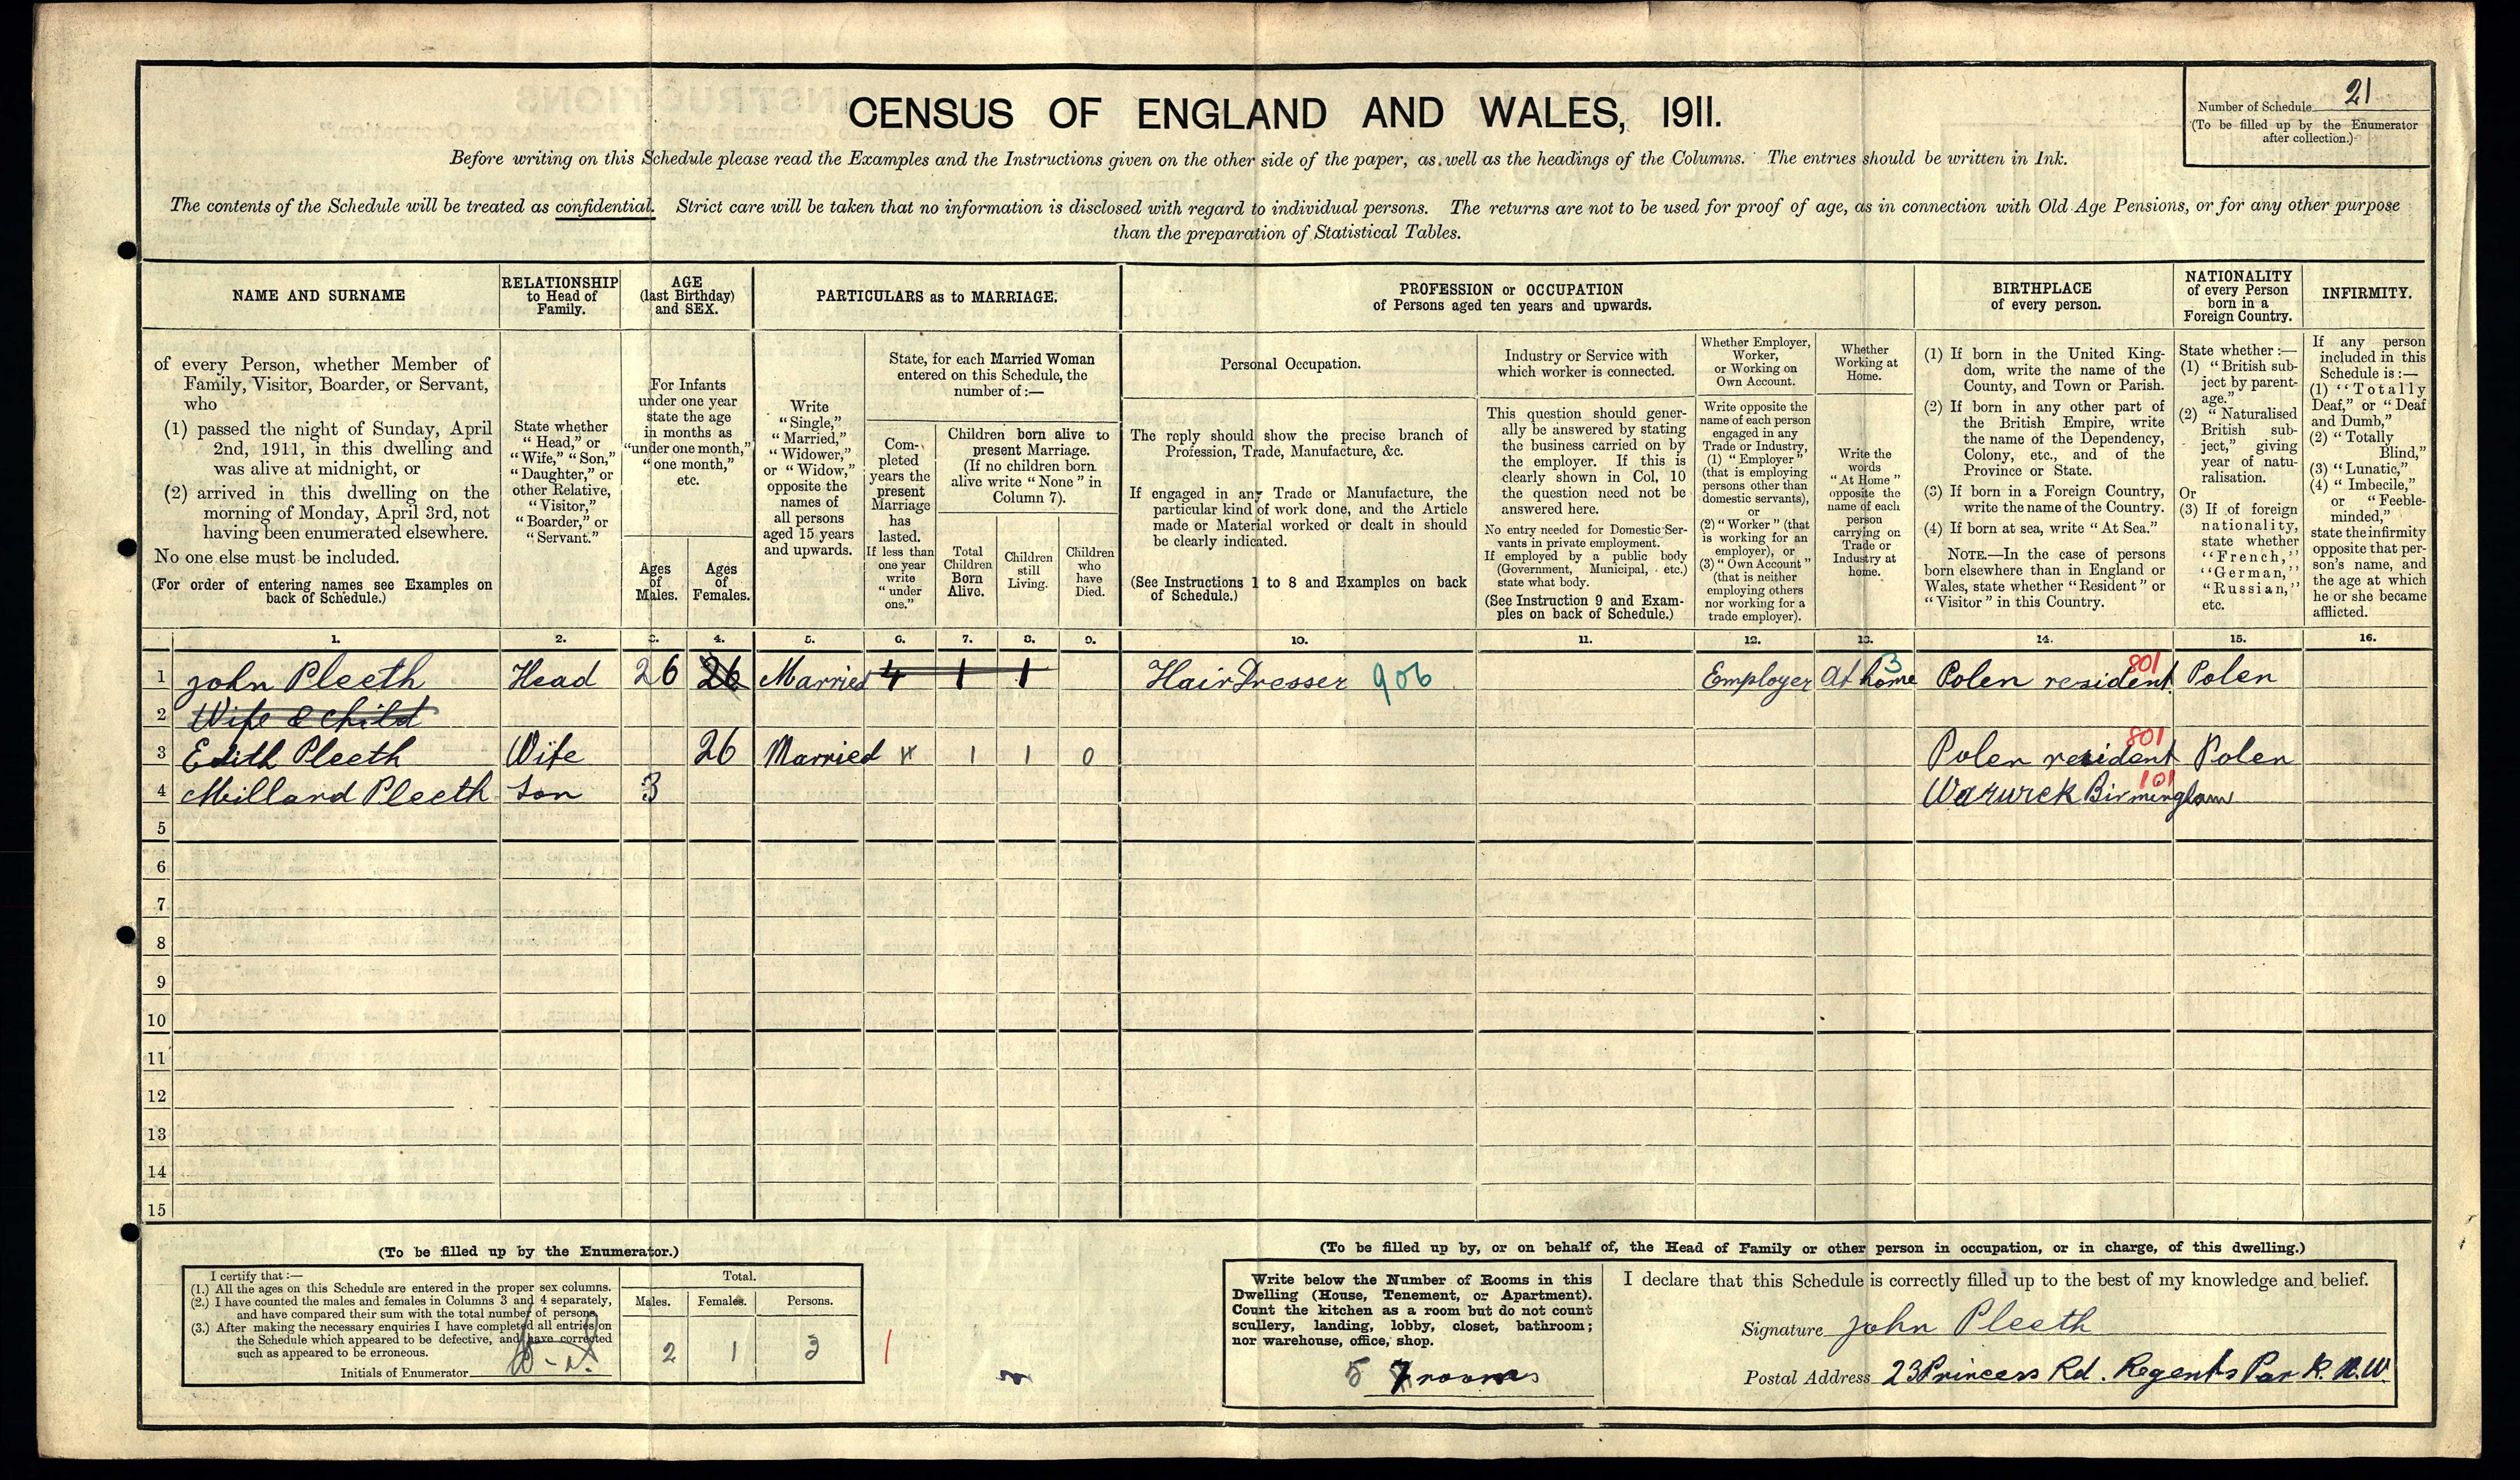 CENSUS OF ENGLAND AND WALES, 1911.
Number of Schedule 21
(To be filled up by the Enumerator
after collection.)
Before writing on this Schedule please read the Examples and the Instructions given on the other side of the paper, as well as the headings of the Columns. The entries should be written in Ink.
The contents of the Schedule will be treated as confidential. Strict care will be taken that no information is disclosed with regard to individual persons. The returns are not to be used for proof of age, as in connection with Old Age Pensions, or for any other purpose
than the preparation of Statistical Tables.
NAME AND SURNAME
of every Person, whether Member of
Family, Visitor, Boarder, or Servant,
who
(1) passed the night of Sunday, April
2nd, 1911, in this dwelling and
was alive at midnight, or
(2) arrived in this dwelling on the
morning of Monday, April 3rd, not
having been enumerated elsewhere.
No one else must be included.
(For order of entering names see Examples on
back of Schedule.)
RELATIONSHIP
to Head of
Family.
State whether
"Head," or
"Wife," "Son,"
"Daughter," or
other Relative,
"Visitor,"
"Boarder," or
"Servant."
AGE
(last Birthday)
and SEX.
For Infants
under one year
state the age
in months as
"under one month,"
"one month,"
etc.
Ages
of
Males.
Ages
of
Females.
PARTICULARS as to MARRIAGE.
Write
"Single,"
"Married,"
"Widower,"
or "Widow,"
opposite the
names of
all persons
aged 15 years
and upwards.
State, for each Married Woman
entered on this Schedule, the
number of :—
Com-
pleted
years the
present
Marriage
has
lasted.
If less than
one year
write
"under
one."
Children born alive to
present Marriage.
(If no children born
alive write "None" in
Column 7).
Total
Children
Born
Alive.
Children
still
Living.
Children
who
have
Died.
PROFESSION or OCCUPATION
of Persons aged ten years and upwards.
Personal Occupation.
The reply should show the precise branch of
Profession, Trade, Manufacture, &c.
If engaged in any Trade or Manufacture, the
particular kind of work done, and the Article
made or Material worked or dealt in should
be clearly indicated.
(See Instructions 1 to 8 and Examples on back
of Schedule.)
Industry or Service with
which worker is connected.
This question should gener-
ally be answered by stating
the business carried on by
the employer. If this is
clearly shown in Col. 10
the question need not be
answered here.
No entry needed for Domestic Ser-
vants in private employment.
If employed by a public body
(Government, Municipal, etc.)
state what body.
(See Instruction 9 and Exam-
ples on back of Schedule.)
Whether Employer,
Worker,
or Working on
Own Account.
Write opposite the
name of each person
engaged in any
Trade or Industry,
(1) "Employer"
(that is employing
persons other than
domestic servants),
or
(2) "Worker" (that
is working for an
employer), or
(3) "Own Account"
(that is neither
employing others
nor working for a
trade employer).
Whether
Working at
Home.
Write the
words
"At Home"
opposite the
name of each
person
carrying on
Trade or
Industry at
home.
BIRTHPLACE
of every person.
(1) If born in the United King-
dom, write the name of the
County, and Town or Parish.
(2) If born in any other part of
the British Empire, write
the name of the Dependency,
Colony, etc., and of the
Province or State.
(3) If born in a Foreign Country,
write the name of the Country.
(4) If born at sea, write "At Sea."
NOTE.—In the case of persons
born elsewhere than in England or
Wales, state whether "Resident" or
"Visitor" in this Country.
NATIONALITY
of every Person
born in a
Foreign Country.
State whether :—
(1) "British sub-
ject by parent-
age."
(2) "Naturalised
British sub-
ject," giving
year of natu-
ralisation.
Or
(3) If of foreign
nationality,
state whether
"French,"
"German,"
"Russian,"
etc.
INFIRMITY.
If any person
included in this
Schedule is :—
(1) "Totally
Deaf," or "Deaf
and Dumb,"
(2) "Totally
Blind,"
(3) "Lunatic,"
(4) "Imbecile,"
or "Feeble-
minded,"
state the infirmity
opposite that per-
son's name, and
the age at which
he or she became
afflicted.
1. 2. 3. 4. 5. 6. 7. 8. 9. 10. 11. 12. 13. 14. 15. 16.
1 John Pleeth Head 26 26 Married 4 1 1 Hair Dresser 906 Employer At home 3 Polen resident 801 Polen
2 Wife & child
3 Edith Pleeth Wife 26 Married 4 1 1 0 Polen resident 801 Polen
4 Millard Pleeth Son 3 Warwick Birmingham 101
5
6
7
8
9
10
11
12
13
14
15
(To be filled up by the Enumerator.)
I certify that :—
(1.) All the ages on this Schedule are entered in the proper sex columns.
(2.) I have counted the males and females in Columns 3 and 4 separately,
and have compared their sum with the total number of persons.
(3.) After making the necessary enquiries I have completed all entries on
the Schedule which appeared to be defective, and have corrected
such as appeared to be erroneous.
Initials of Enumerator
Total.
Males. Females. Persons.
2 1 3
1
(To be filled up by, or on behalf of, the Head of Family or other person in occupation, or in charge, of this dwelling.)
Write below the Number of Rooms in this
Dwelling (House, Tenement, or Apartment).
Count the kitchen as a room but do not count
scullery, landing, lobby, closet, bathroom;
nor warehouse, office, shop.
5 7 rooms
I declare that this Schedule is correctly filled up to the best of my knowledge and belief.
Signature John Pleeth
Postal Address 23 Princess Rd. Regents Park. N.W.